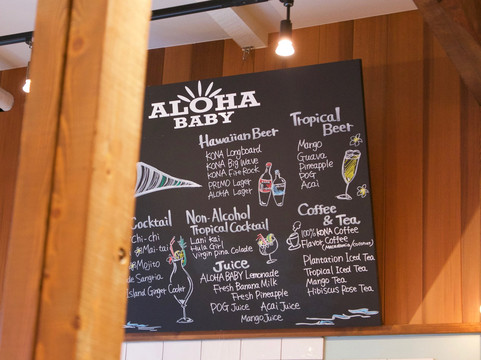 ALOHA
BABY
Hawaiian Beer
KONA Longboard
KONA Big Wave
KONA Fire Rock
PRIMO Lager
ALOHA Lager
Tropical
Beer
Mango
Guava
Pineapple
POG
Acai
Cocktail
Chi-chi
Mai-tai
Mojito
de Sangria
Island Ginger Cooler
Non-Alcohol
Tropical Cocktail
Lani kai
Hula Girl
Virgin pina Colade
Juice
ALOHA BABY Lemonade
Fresh Banana Milk
Fresh Pineapple
POG Juice Acai Juice
Mango Juice
Coffee
& Tea
100% KONA Coffee
Flavor Coffee
Plantation Iced Tea
Tropical Iced Tea
Mango Tea
Hibiscus Rose Tea